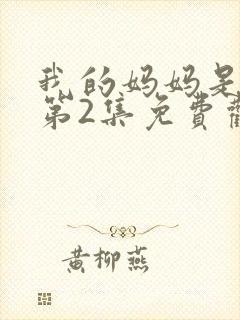 我的妈妈是
第2集免費
黄柳燕